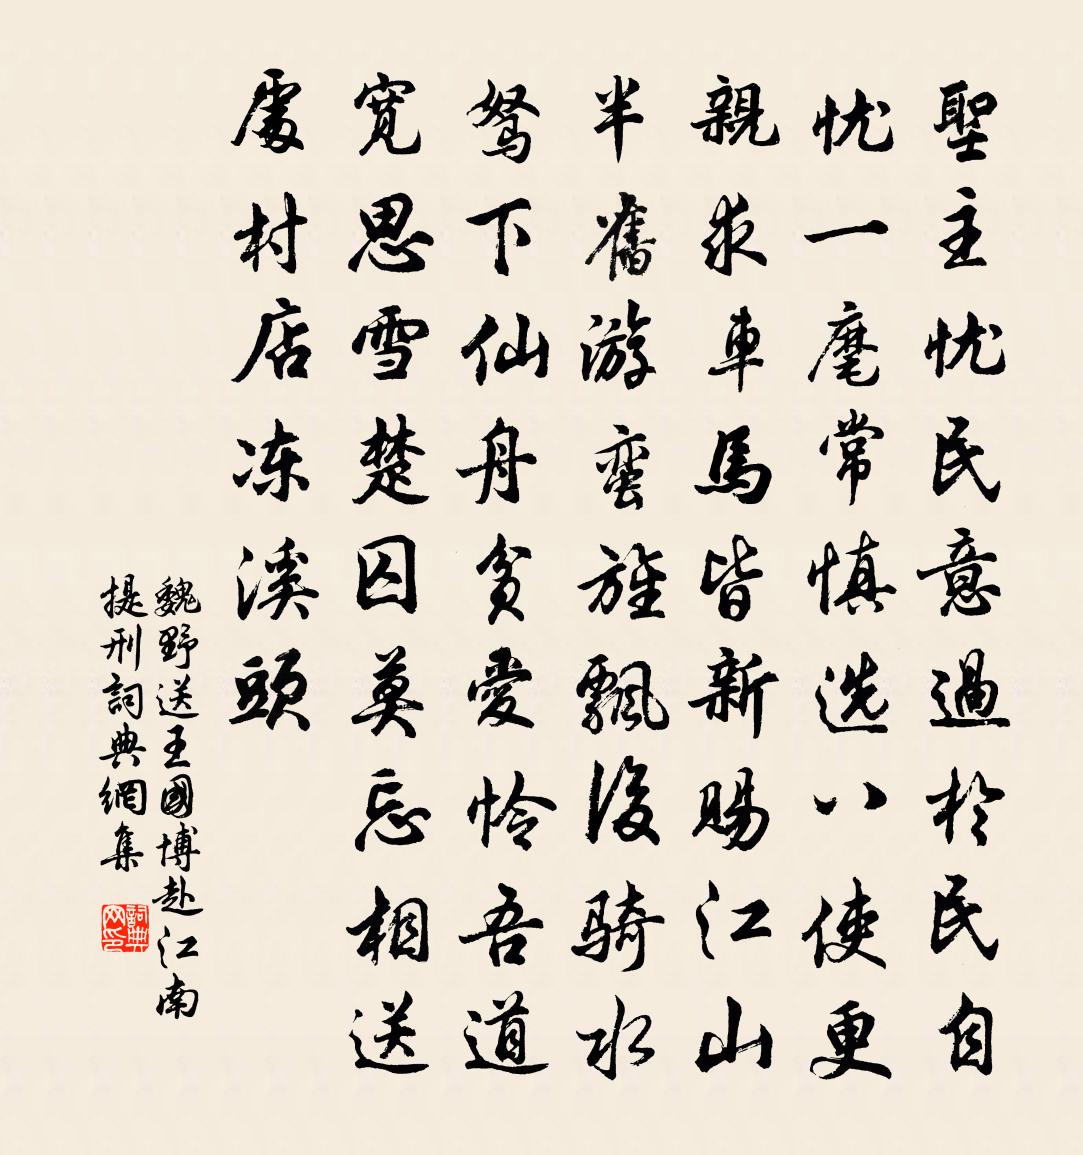 聖主忧民意過於民自
忧一麾常慎选八使更
親求車馬皆新賜江山
半舊游蛮旌飄後騎水
驽下仙舟貧愛怜吾道
寬思雪楚囚莫忘相送
處村店冻溪頭
魏野送王國博赴江南
提刑詞典網集
詞典网印